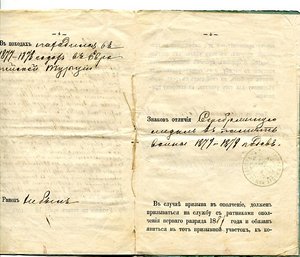 — 4 —
Въ походахъ находился въ
1877–1878 годовъ въ Евро
пейской Турціи
Раненъ не былъ
— 5 —
Знаковъ отличія Серебрянную
медаль въ память
войны 1877–1878 годовъ.
Въ случаѣ призыва въ ополченіе, долженъ
призываться на службу съ ратниками опол
ченія перваго разряда 18 года и обязанъ
явиться на тотъ призывной участокъ, къ ко-